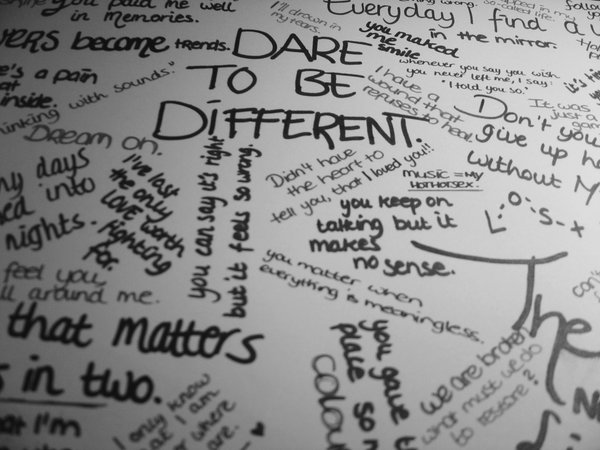 you paid me well
in memories.
become trends.
DARE
TO BE
DiFFERENT.
I'll drown in
my fears.
Everyday I find a
in the mirror.
you maked
me
smile
whenever you say you wish
you never left me, I say:
"I told you so."
I have a
wound that
refuses to heal.
Don't you
give up
without
It was
just a
's a pain
inside.
with sounds."
Dream on.
days
into
nights.
I've last
the only
LOVE worth
fighting
for.
you can say it's right
but it feels so wrong.
Didn't have
the heart to
tell you, that I loved you!!
music = My
HOTHOTSEX.
you keep on
talking but it
makes
no sense.
L-O-S-X
you matter when
everything is meaningless.
feel you,
all around me.
that matters
in two.
I'm
I only know
I am
where
are.
you gave
place so
colou
The
we are broken
what must we do
to restore?